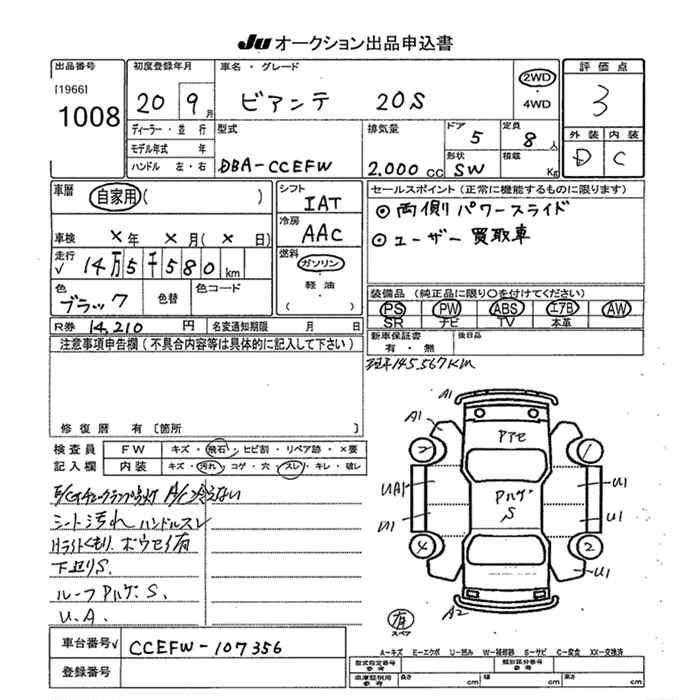 Ju オークション出品申込書
出品番号
[1966]
1008
初度登録年月
20 9月
ディーラー・並 行
モデル年式 年
ハンドル 左・右
車名・グレード
ビアンテ 20S
2WD
4WD
型式
DBA-CCEFW
排気量
2.000 CC
ドア 5
形状 SW
定員 8人
積載 Kg
評価点
3
外装 内装
D C
車歴 自家用( )
車検 ×年 ×月(× 日)
走行 √ 14万5千580 km
色 ブラック
色替
色コード
R券 14,210 円
名変通知期限 月 日
シフト IAT
冷房 AAC
燃料
ガソリン
軽油
( )
セールスポイント(正常に機能するものに限ります)
◎ 両側パワースライド
◎ ユーザー買取車
装備品(純正品に限り○を付けてください)
PS PW ABS エアB AW
SR ナビ TV 本革
新車保証書
有・無
後日品
注意事項申告欄(不具合内容等は具体的に記入して下さい)
修復歴 有〔箇所 〕
145,567KM
検査員
記入欄
FW キズ・飛石・ヒビ割・リペア跡・×要
内装 キズ・汚れ・コゲ・穴・スレ・キレ・破レ
E/Gチェックランプ点灯 A/C冷えない
シート汚れ ハンドルスレ
Hライトくもり、ボウセイ有
下廻りS.
ルーフPハゲ.S.
U.A.
A1
A1
Pアセ
2
1
UA1
U1
Pハゲ
S
U1
U1
4
2
U1
A2
有
スペア
車台番号√ CCEFW-107356
登録番号
A-キズ E-エクボ U-凹み W-補修跡 S-サビ C-腐食 XX-交換済
型式指定番号
参考
類別区分番号
参考
車庫証明用
参考
長さ cm 幅 cm 高さ cm